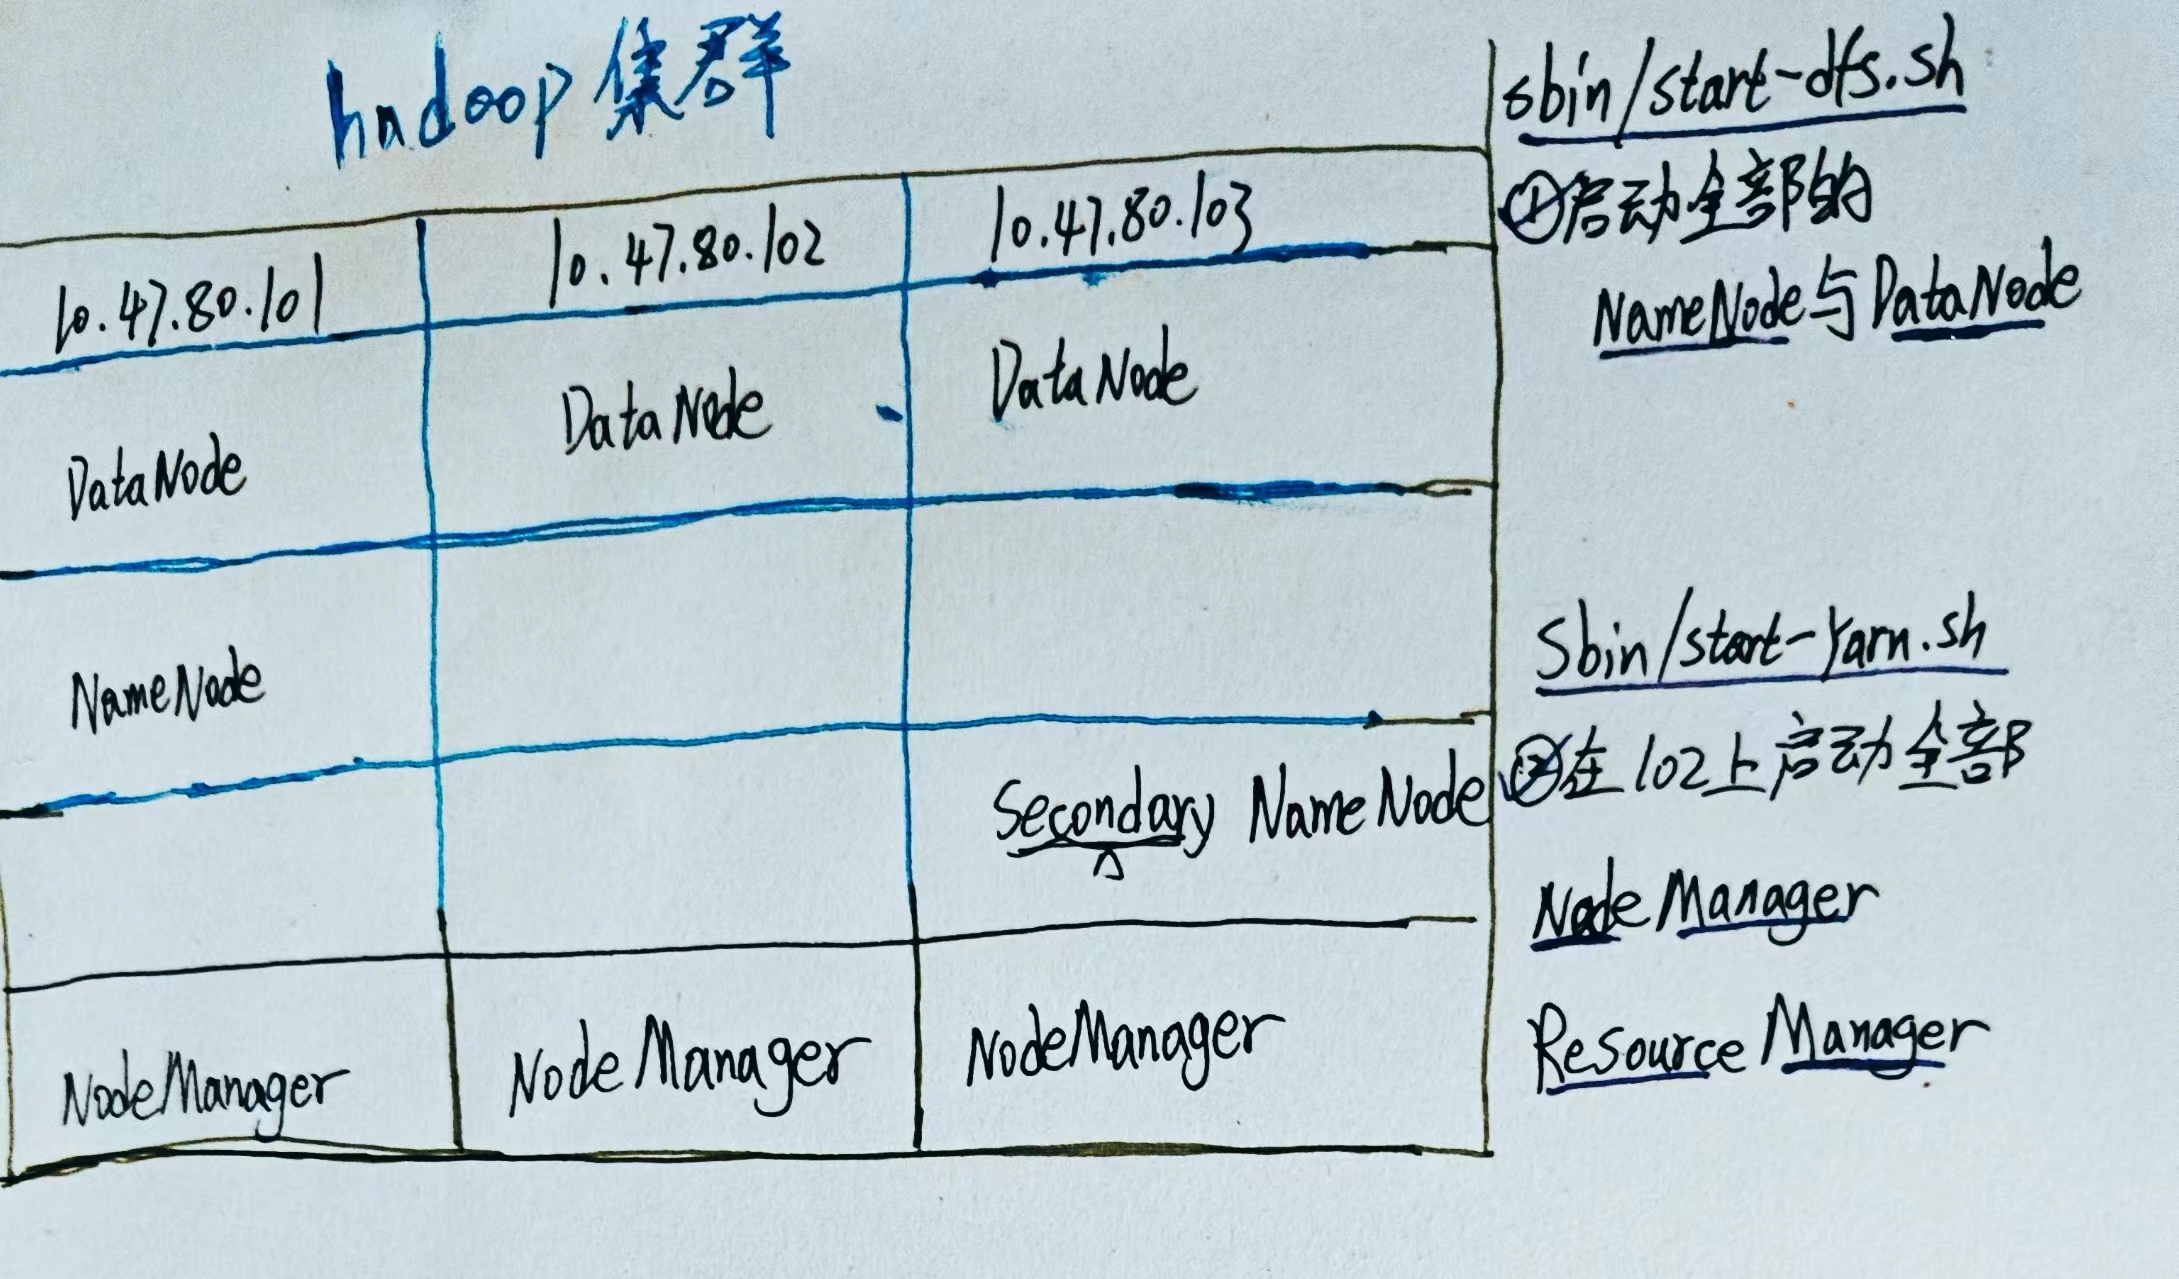 hadoop 集群
10.47.80.101 10.47.80.102 10.47.80.103
DataNode DataNode DataNode
NameNode
Secondary NameNode
NodeManager NodeManager NodeManager
sbin/start-dfs.sh
①启动全部的
NameNode与DataNode
sbin/start-yarn.sh
②在102上启动全部
NodeManager
ResourceManager